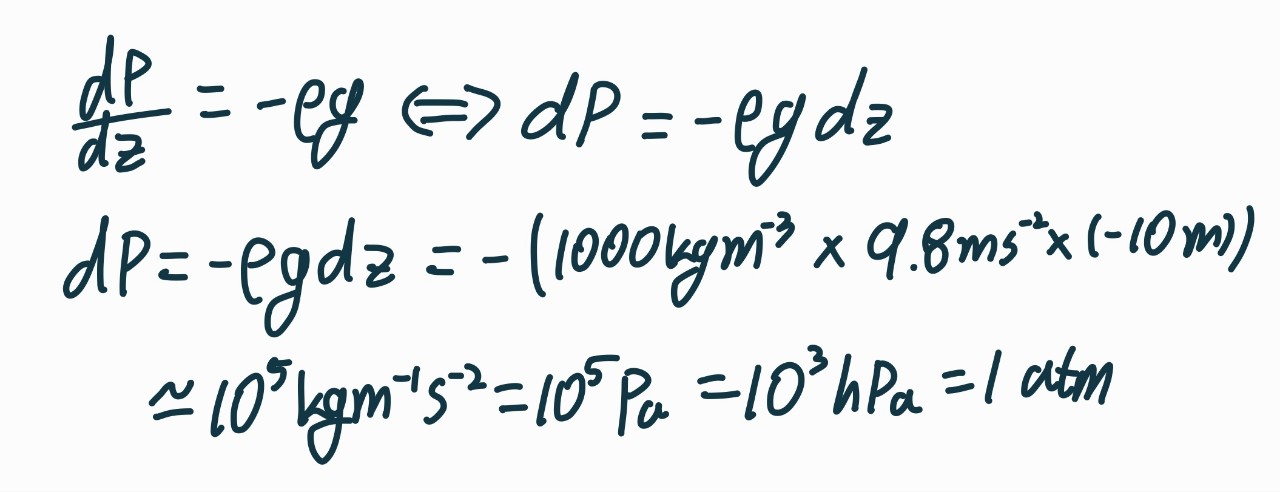 dP/dz = -ρg ⟺ dP = -ρg dz
dP = -ρg dz = -(1000kgm⁻³ × 9.8ms⁻² × (-10m))
≃ 10⁵kgm⁻¹s⁻² = 10⁵Pa = 10³hPa = 1 atm